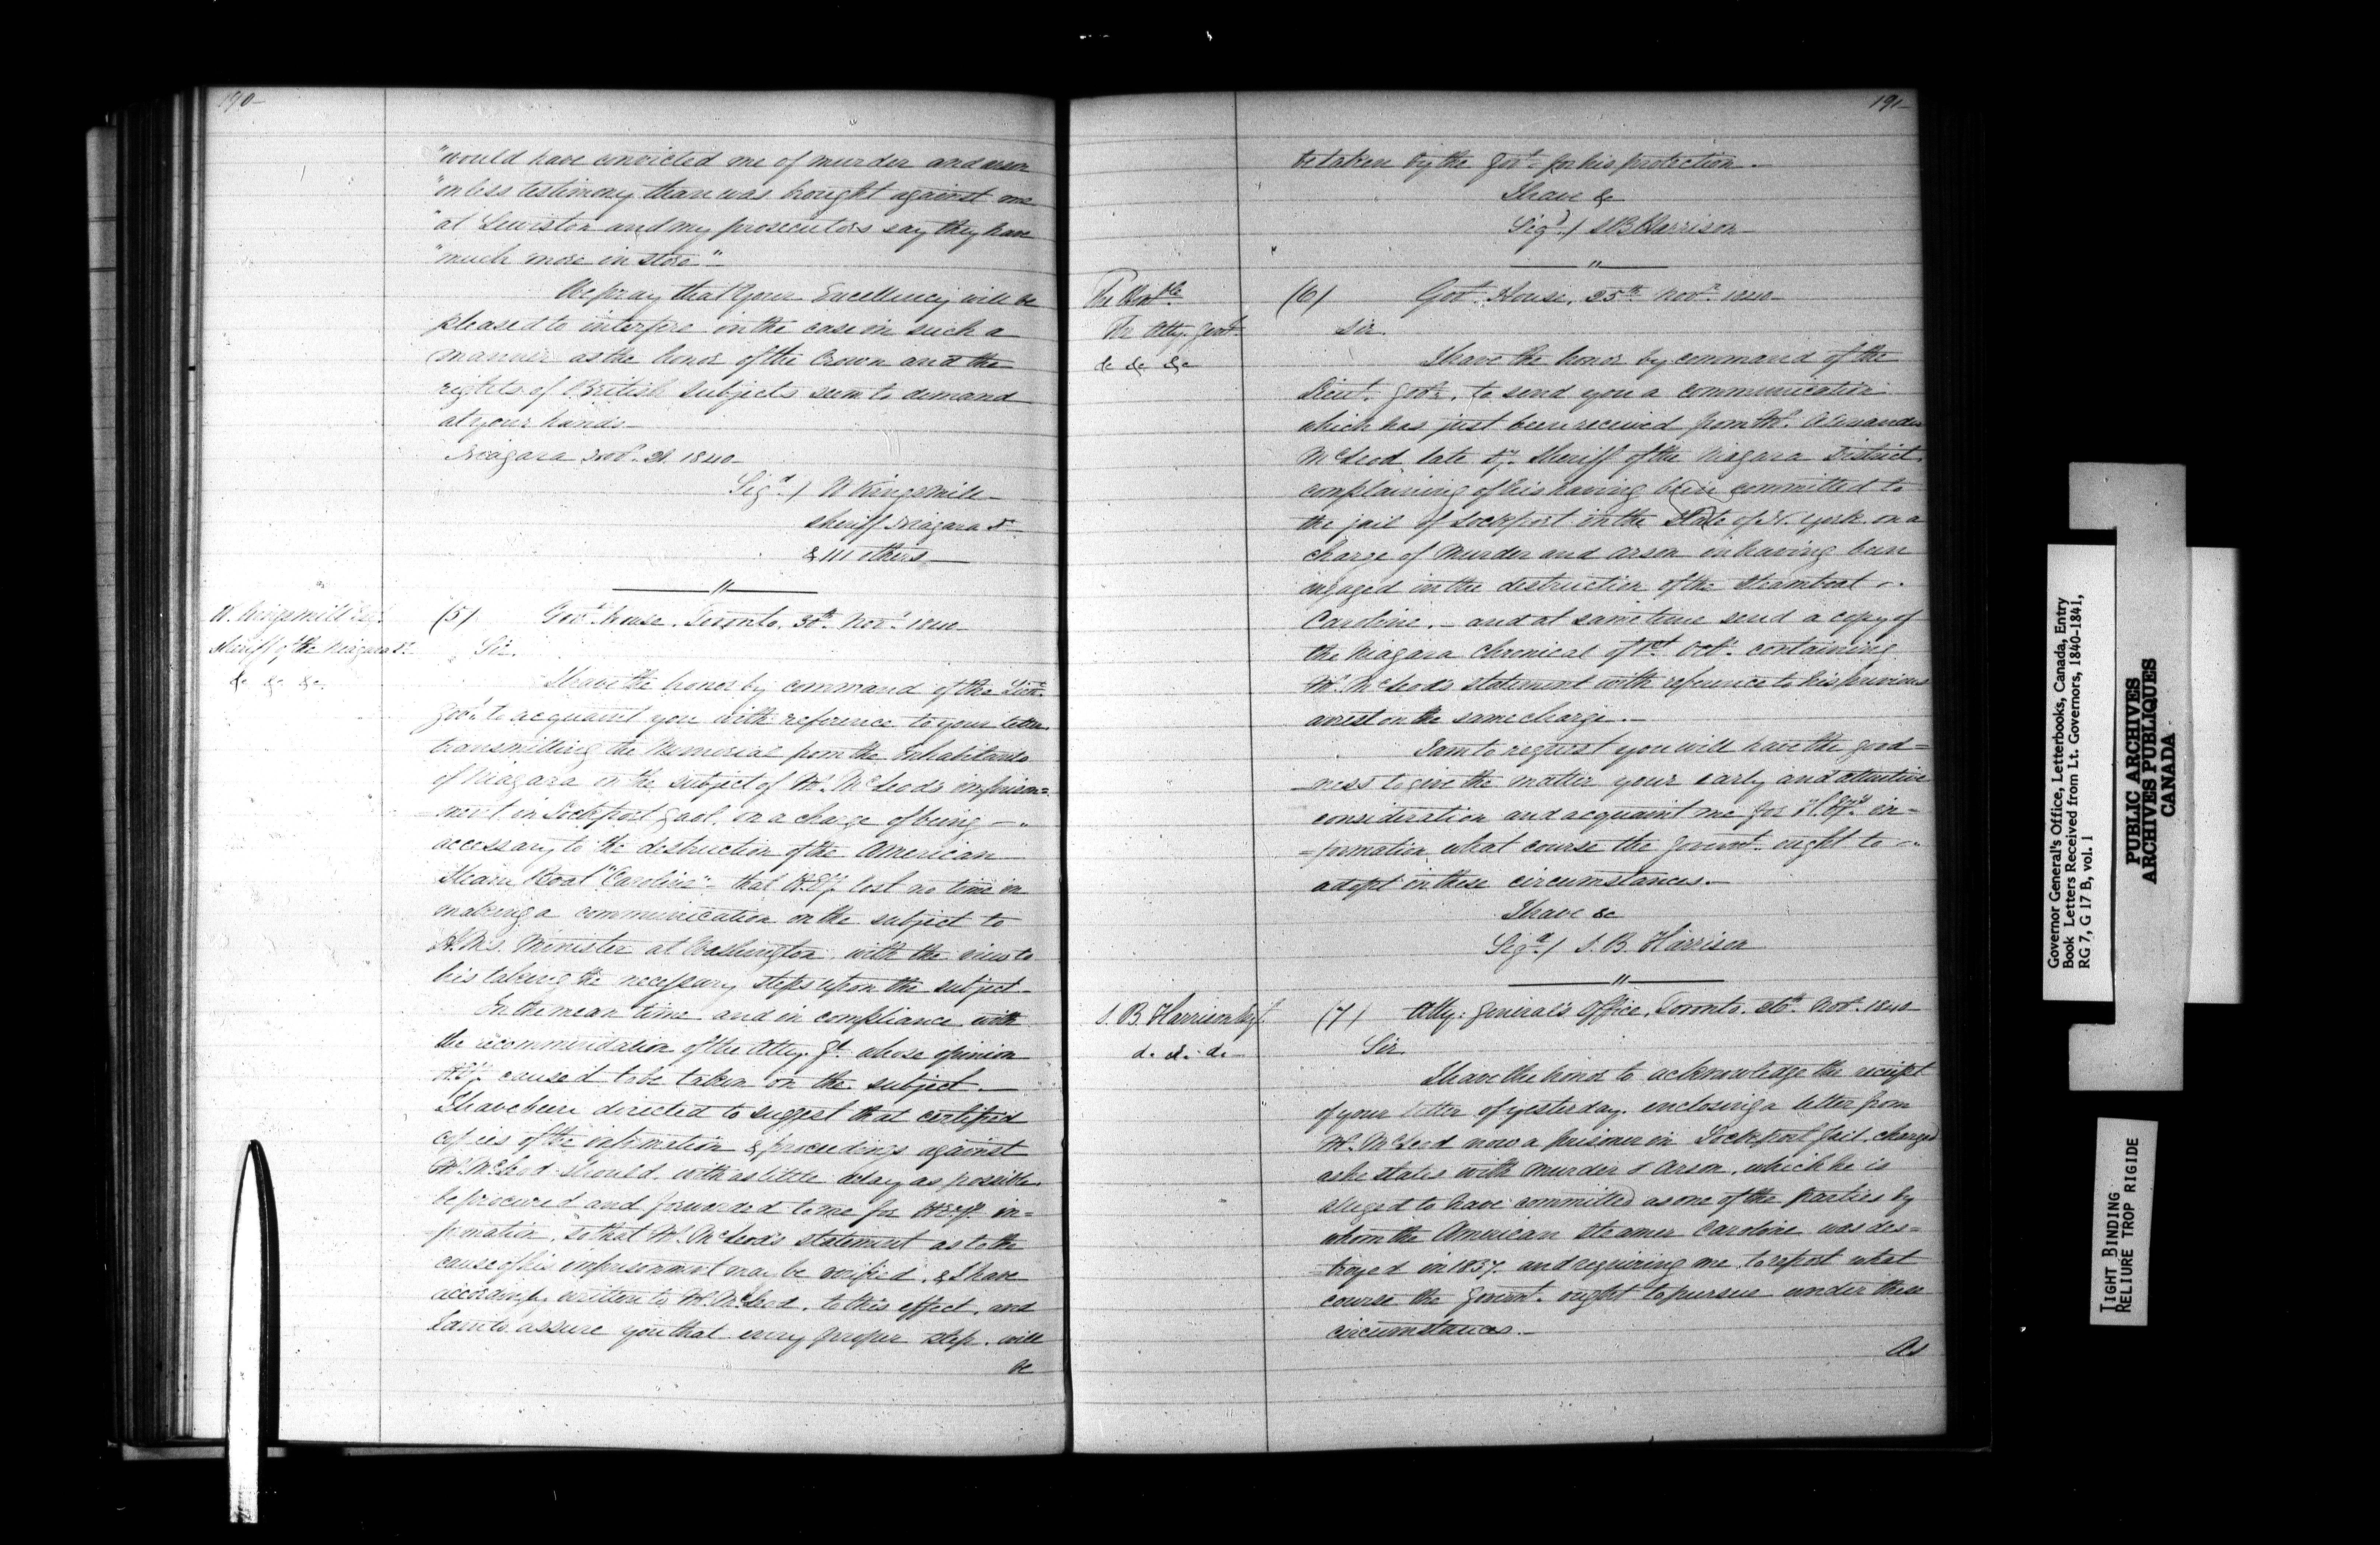 190-
"would have convicted me of murder and arson
"on less testimony than was brought against me
"at Lewiston and my prosecutors say they have
"much more in store"-
We pray that Your Excellency will be
pleased to interfere in the case in such a
manner as the honor of the Crown and the
rights of British subjects seem to demand
at your hands-
Niagara Novr. 21. 1840-
Sigd / W Kingsmill-
Sheriff Niagara Dt
& 111 others-
W. Kingsmill Esqr.
Sheriff of the Niagara Dt.
&c &c &c.
(5) Govt. house, Toronto, 30th. Novr. 1840-
Sir.
I have the honor by command of the Lieut.
Govr. to acquaint you with reference to your letter
transmitting the Memorial from the Inhabitants
of Niagara on the subject of Mr. McLeod's imprison=
=ment in Lockport Gaol. on a charge of being -
accessary to the destruction of the American
Steam Boat "Caroline" - that H.Ey. lost no time in
making a communication on the subject to
H.M's. Minister at Washington, with the view to
his taking the necessary steps upon the subject-
In the mean time, and in compliance with
the recommendation of the Atty. Gl. whose opinion
H.Ey. caused to be taken on the subject.-
I have been directed to suggest that certified
copies of the information & proceedings against
Mr. McLeod should, with as little delay as possible
be procured and forwarded to me for H.Ey's. in=
=formation, so that Mr. McLeod's statement as to the
cause of his imprisonment may be verified, & I have
accordingly written to Mr. McLeod, to this effect, and
I am to assure you that every proper step. will
be
191-
be taken by the Govt. for his protection.-
I have &c
Sigd. / S B Harrison-
The Honble
The Atty. Genl.
&c &c &c
(6) Govt. House, 25th Novr. 1840-
Sir.
I have the honor by command of the
Lieut. Govr., to send you a communication
which has just been received from Mr. Alexander
McLeod late Dy. Sheriff of the Niagara District.
complaining of his having been committed to
the jail of Lockport in the State of N. York on a
charge of Murder and arson in having been
engaged in the destruction of the Steamboat -
Caroline. - and at same time send a copy of
the Niagara Chronical of 1st Octr. containing
Mr. McLeod's statement with reference to his previous
arrest on the same charge.-
I am to request you will have the good=
=ness to give the matter your early and attentive
consideration and acquaint me for H.Ey's. in=
=formation what course the Governt. ought to -
adopt in these circumstances.-
I have &c
Sigd. / S. B. Harrison
S. B. Harrison Esqr.
&c &c &c
(7) Atty: General's Office, Toronto. 26th. Novr. 1840
Sir
I have the honor to acknowledge the receipt
of your letter of yesterday. enclosing a letter from
Mr. McLeod now a prisoner in Lockport Jail, charged
as he states with Murder & Arson, which he is
alleged to have committed as one of the parties by
whom the American Steamer Caroline was des=
=troyed in 1837. and requiring me to report what
course the Governt. ought to pursue under these
circumstances.-
As
Governor General's Office, Letterbooks, Canada, Entry
Book Letters Received from Lt. Governors, 1840-1841,
RG 7, G 17 B, vol. 1
PUBLIC ARCHIVES
ARCHIVES PUBLIQUES
CANADA
TIGHT BINDING
RELIURE TROP RIGIDE